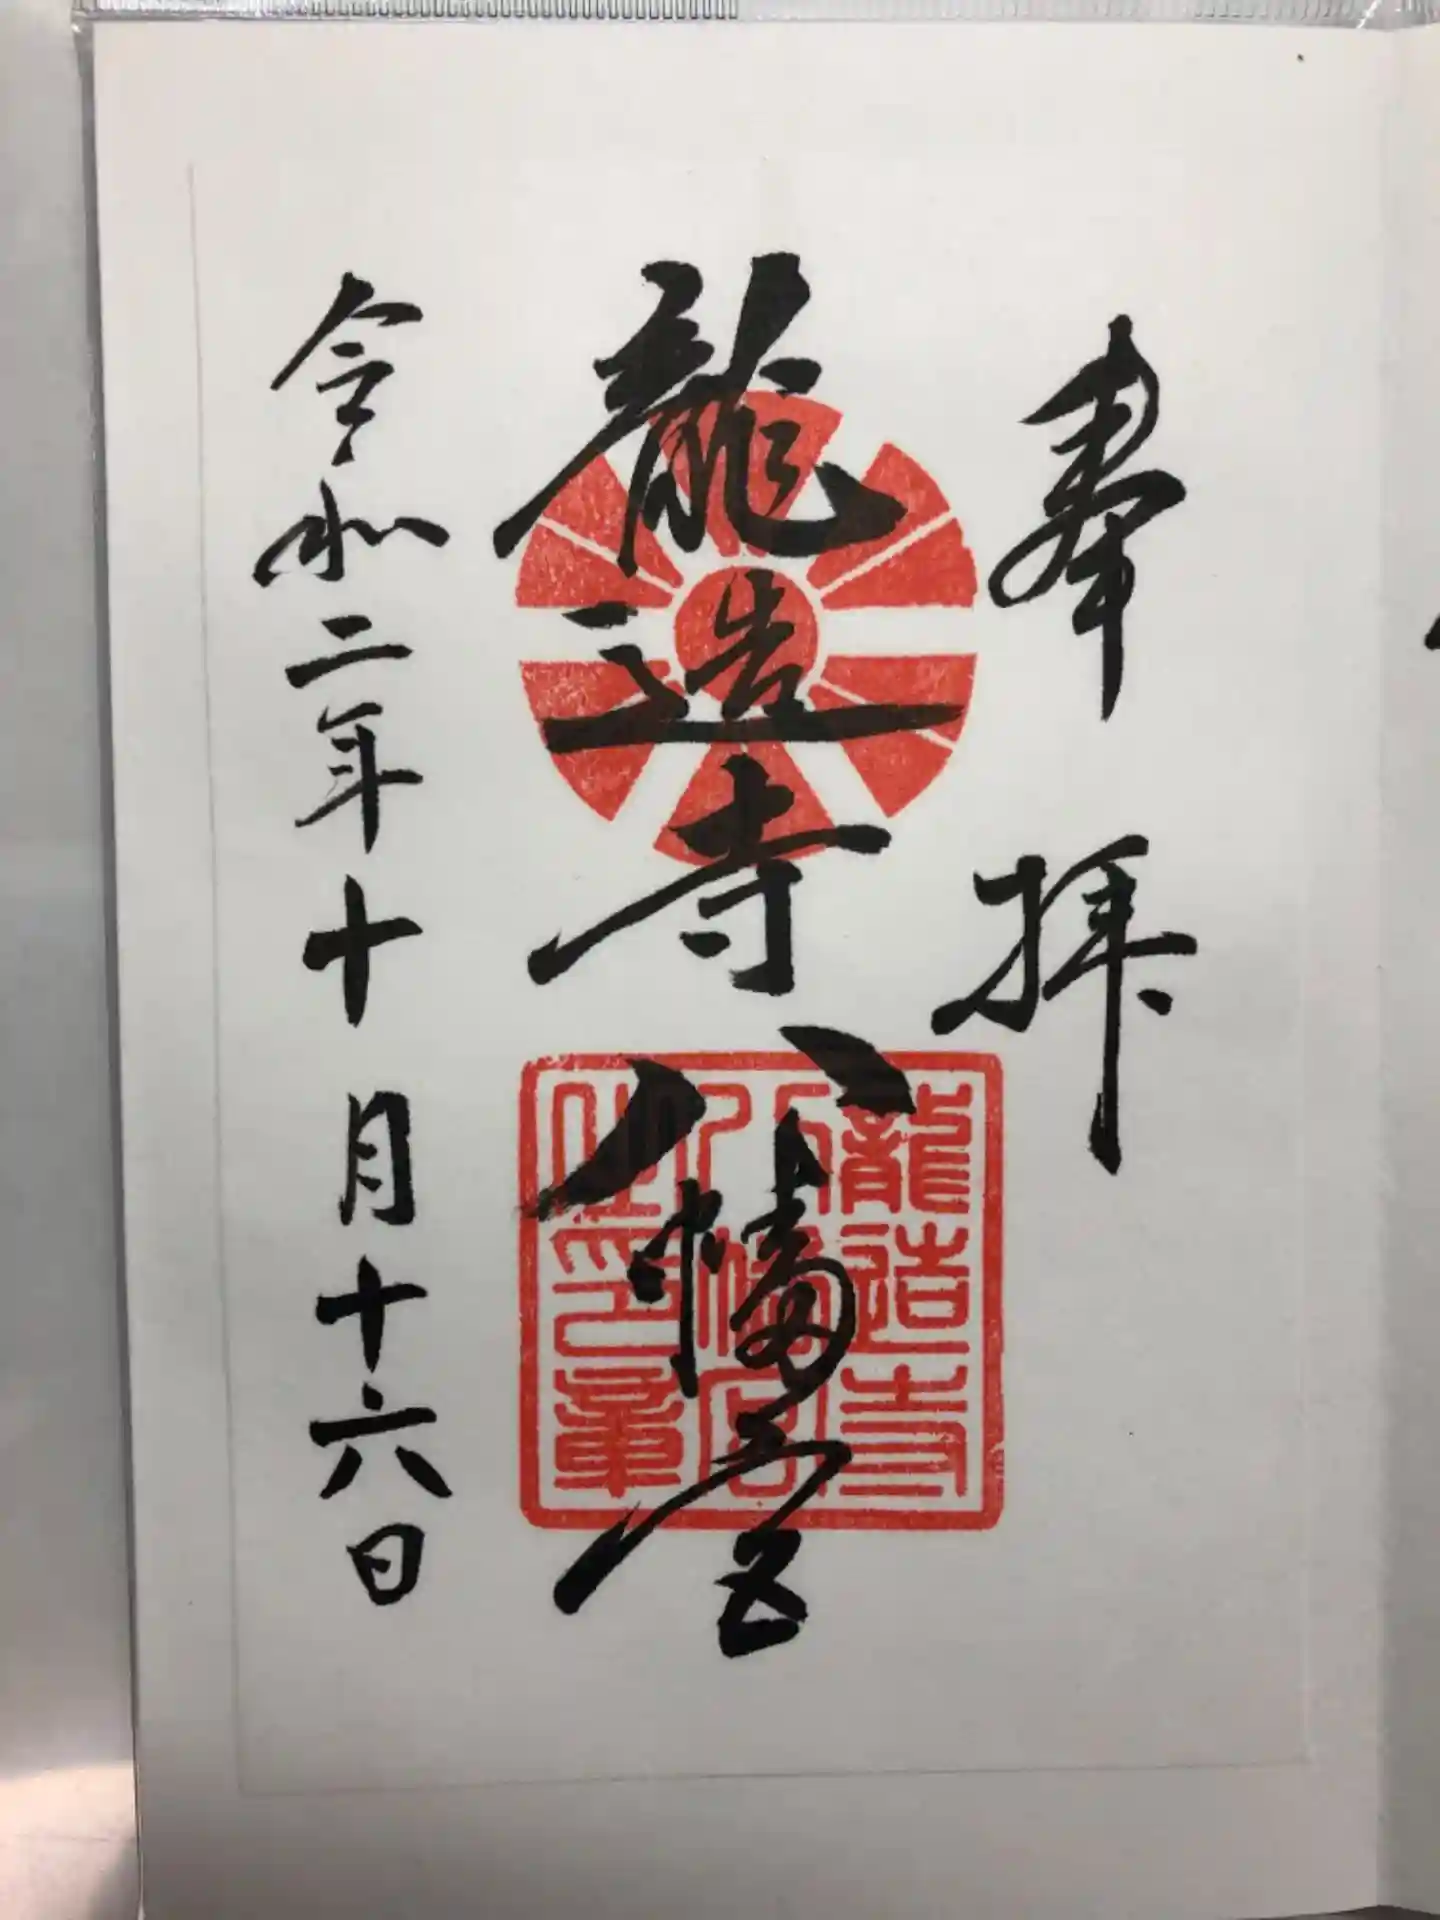 奉拝
龍造寺八幡宮
龍造寺
八幡宮
之印章
令和二年十月十六日